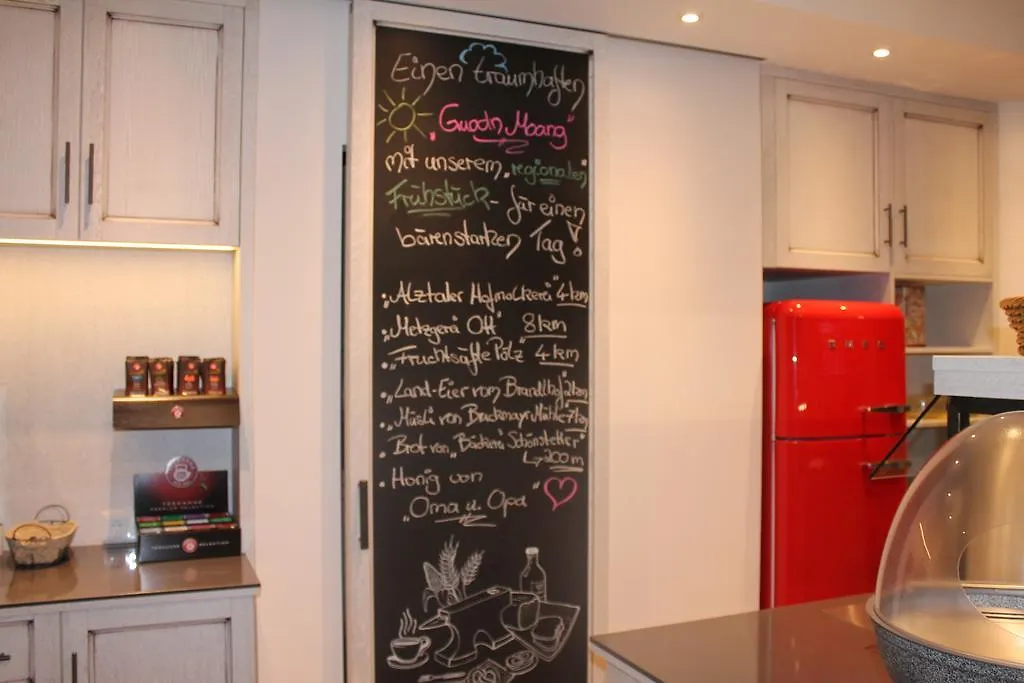 Einen traumhaften
„Guadn Moang"
mit unserem „regionalen
Frühstück - für einen
bärenstarken Tag!
• „Alztaler Hofmolkerei" 4 km
• „Metzgerei Ott" 8 km
• „Fruchtsäfte Pölz" 4 km
• „Land-Eier vom Brandlhof" 2 km
• Müsli von Bruckmayr Mühle 7 km
• Brot von „Bäckerei Schönstetter"
↳ 200 m
• Honig von
„Oma u. Opa"
SMEG
TEEKANNE
PREMIUM SELECTION
TEEKANNE SELECTION